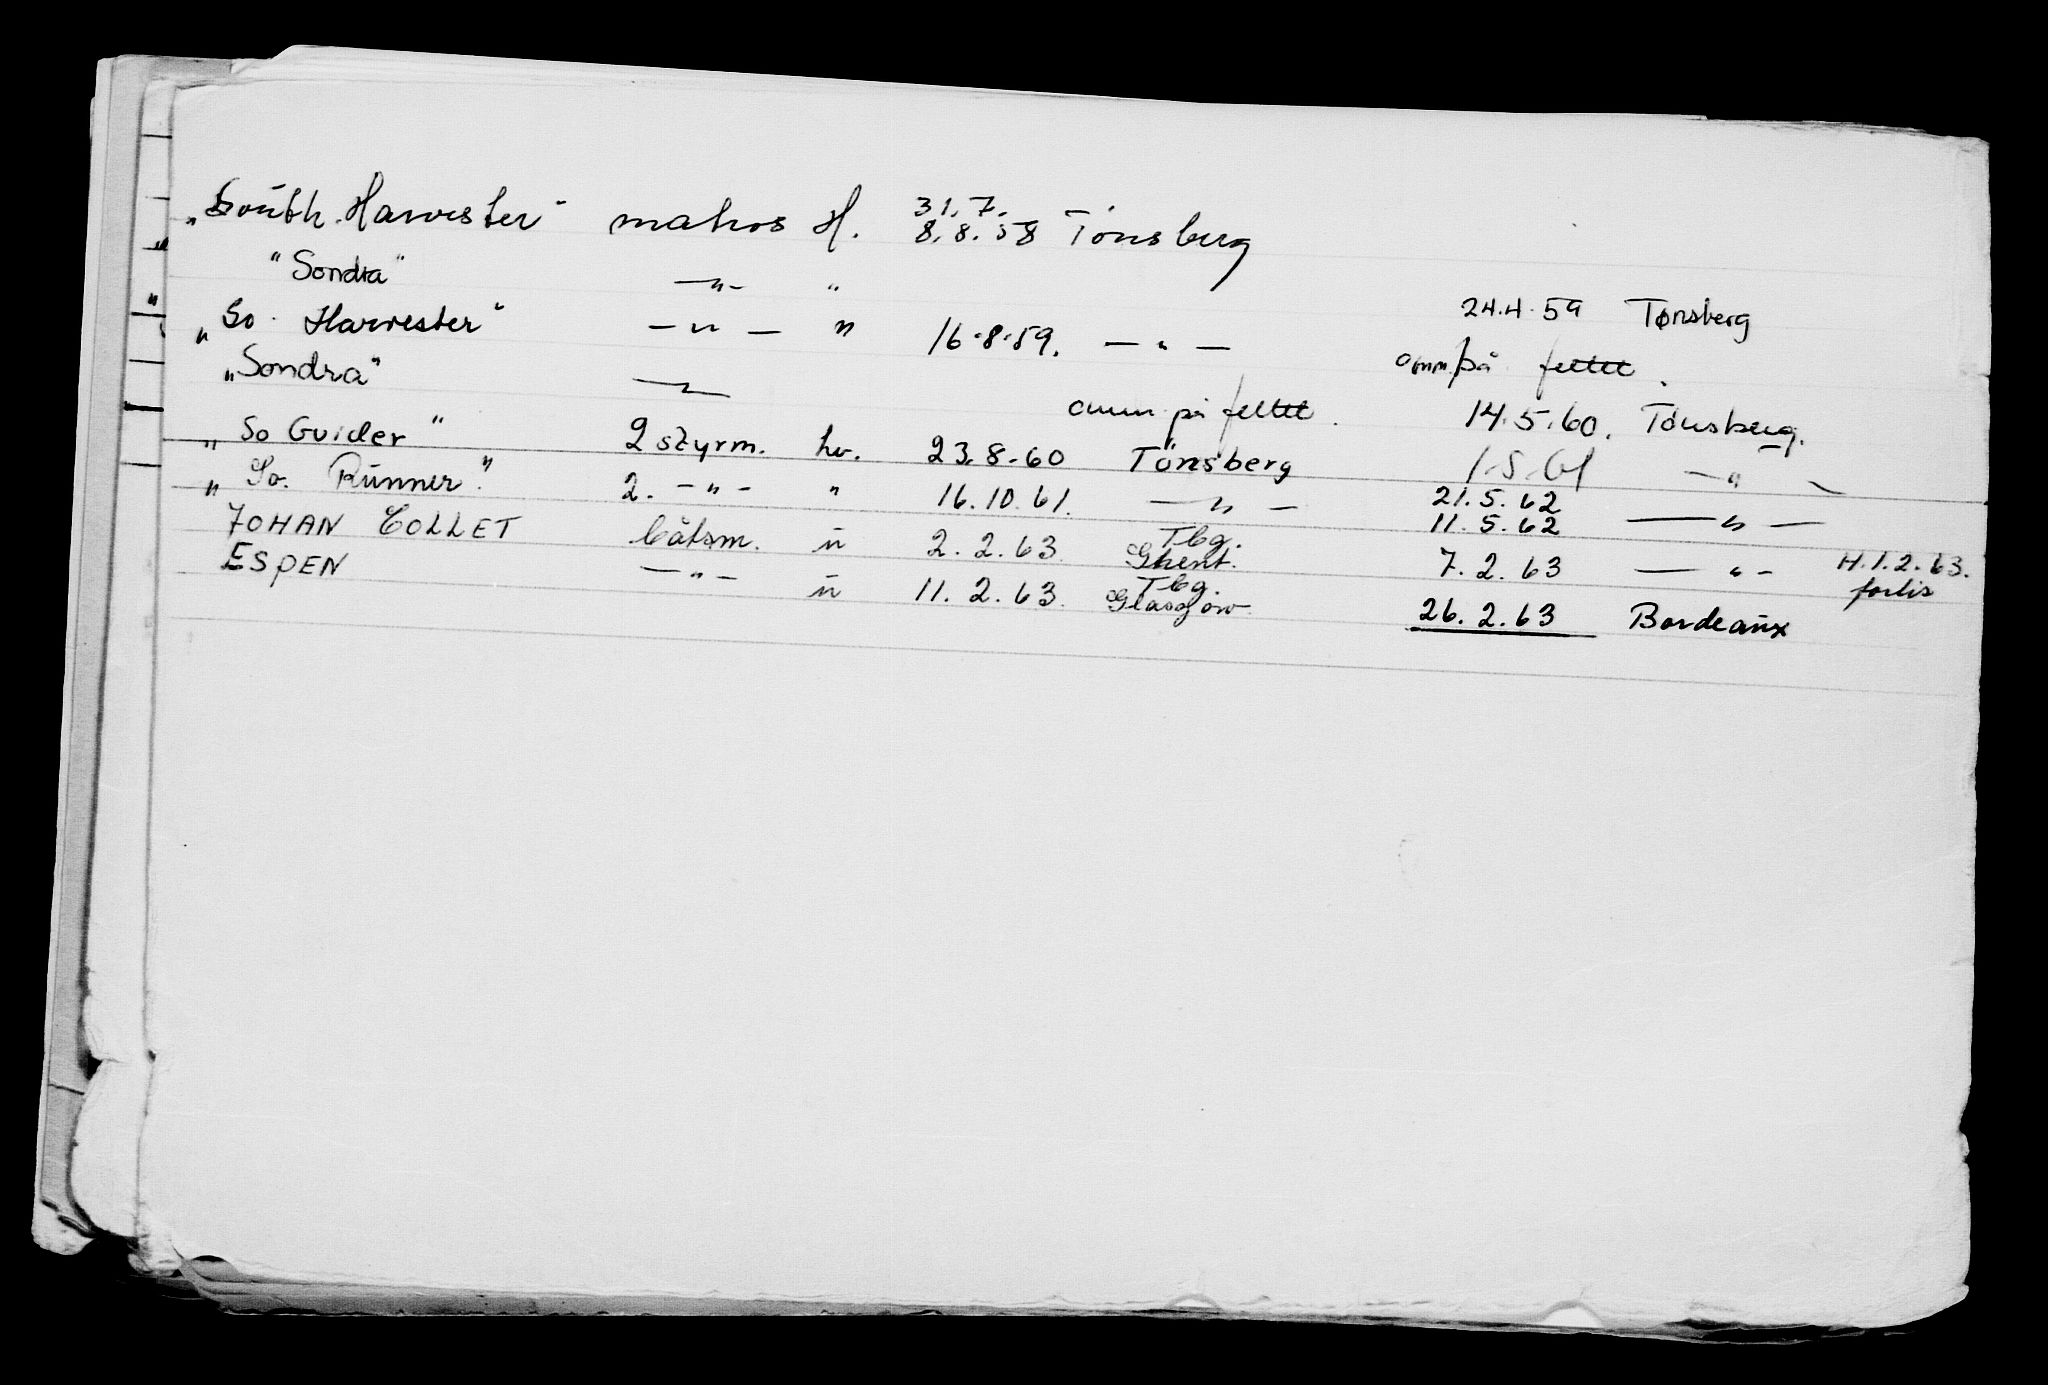 „South. Harvester" matros H. 31.7. 8.8.58 Tönsberg
"Sondra" —"— " 24.4.59 Tønsberg
„So. Harvester" —"— " 16.8.59. —"— omm. på feltet.
„Sondra" —"— omm. på feltet. 14.5.60. Tönsberg.
„So Guider" 2 styrm. hv. 23.8.60 Tönsberg 1.5.61 —"—
„So. Runner." 2. —"— " 16.10.61. —"— 21.5.62 11.5.62 —"—
JOHAN COLLET båtsm. u 2.2.63 Tbg. Ghent. 7.2.63 —"— H.1.2.63.
ESPEN —"— u 11.2.63. Tbg. Glasgow 26.2.63 Bordeaux